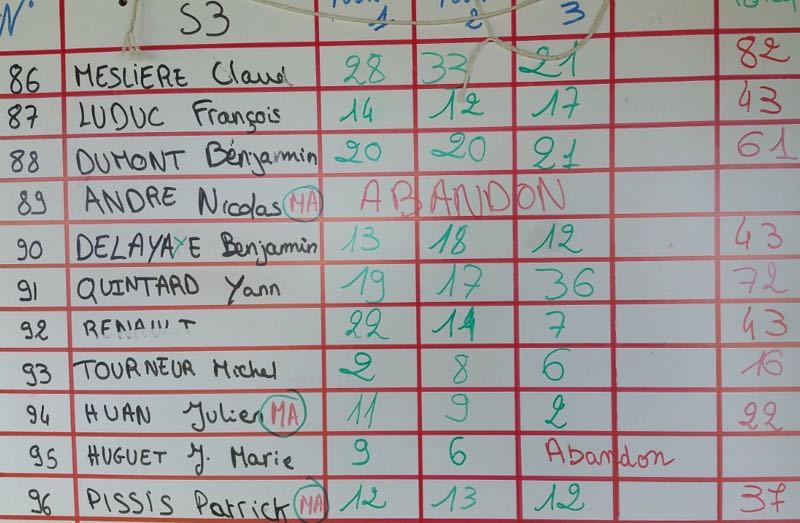 N° S3 1 2 3
86 MESLIERE Claud 28 33 21 82
87 LUDUC François 14 12 17 43
88 DUMONT Bénjarmin 20 20 21 61
89 ANDRE Nicolas MA ABANDON
90 DELAYAYE Benjarmin 13 18 12 43
91 QUINTARD Yann 19 17 36 72
92 RENAULT 22 14 7 43
93 TOURNEUR Michel 2 8 6 16
94 HUAN Julien MA 11 9 2 22
95 HUGUET J. Marie 9 6 Abandon
96 PISSIS Patrick MA 12 13 12 37